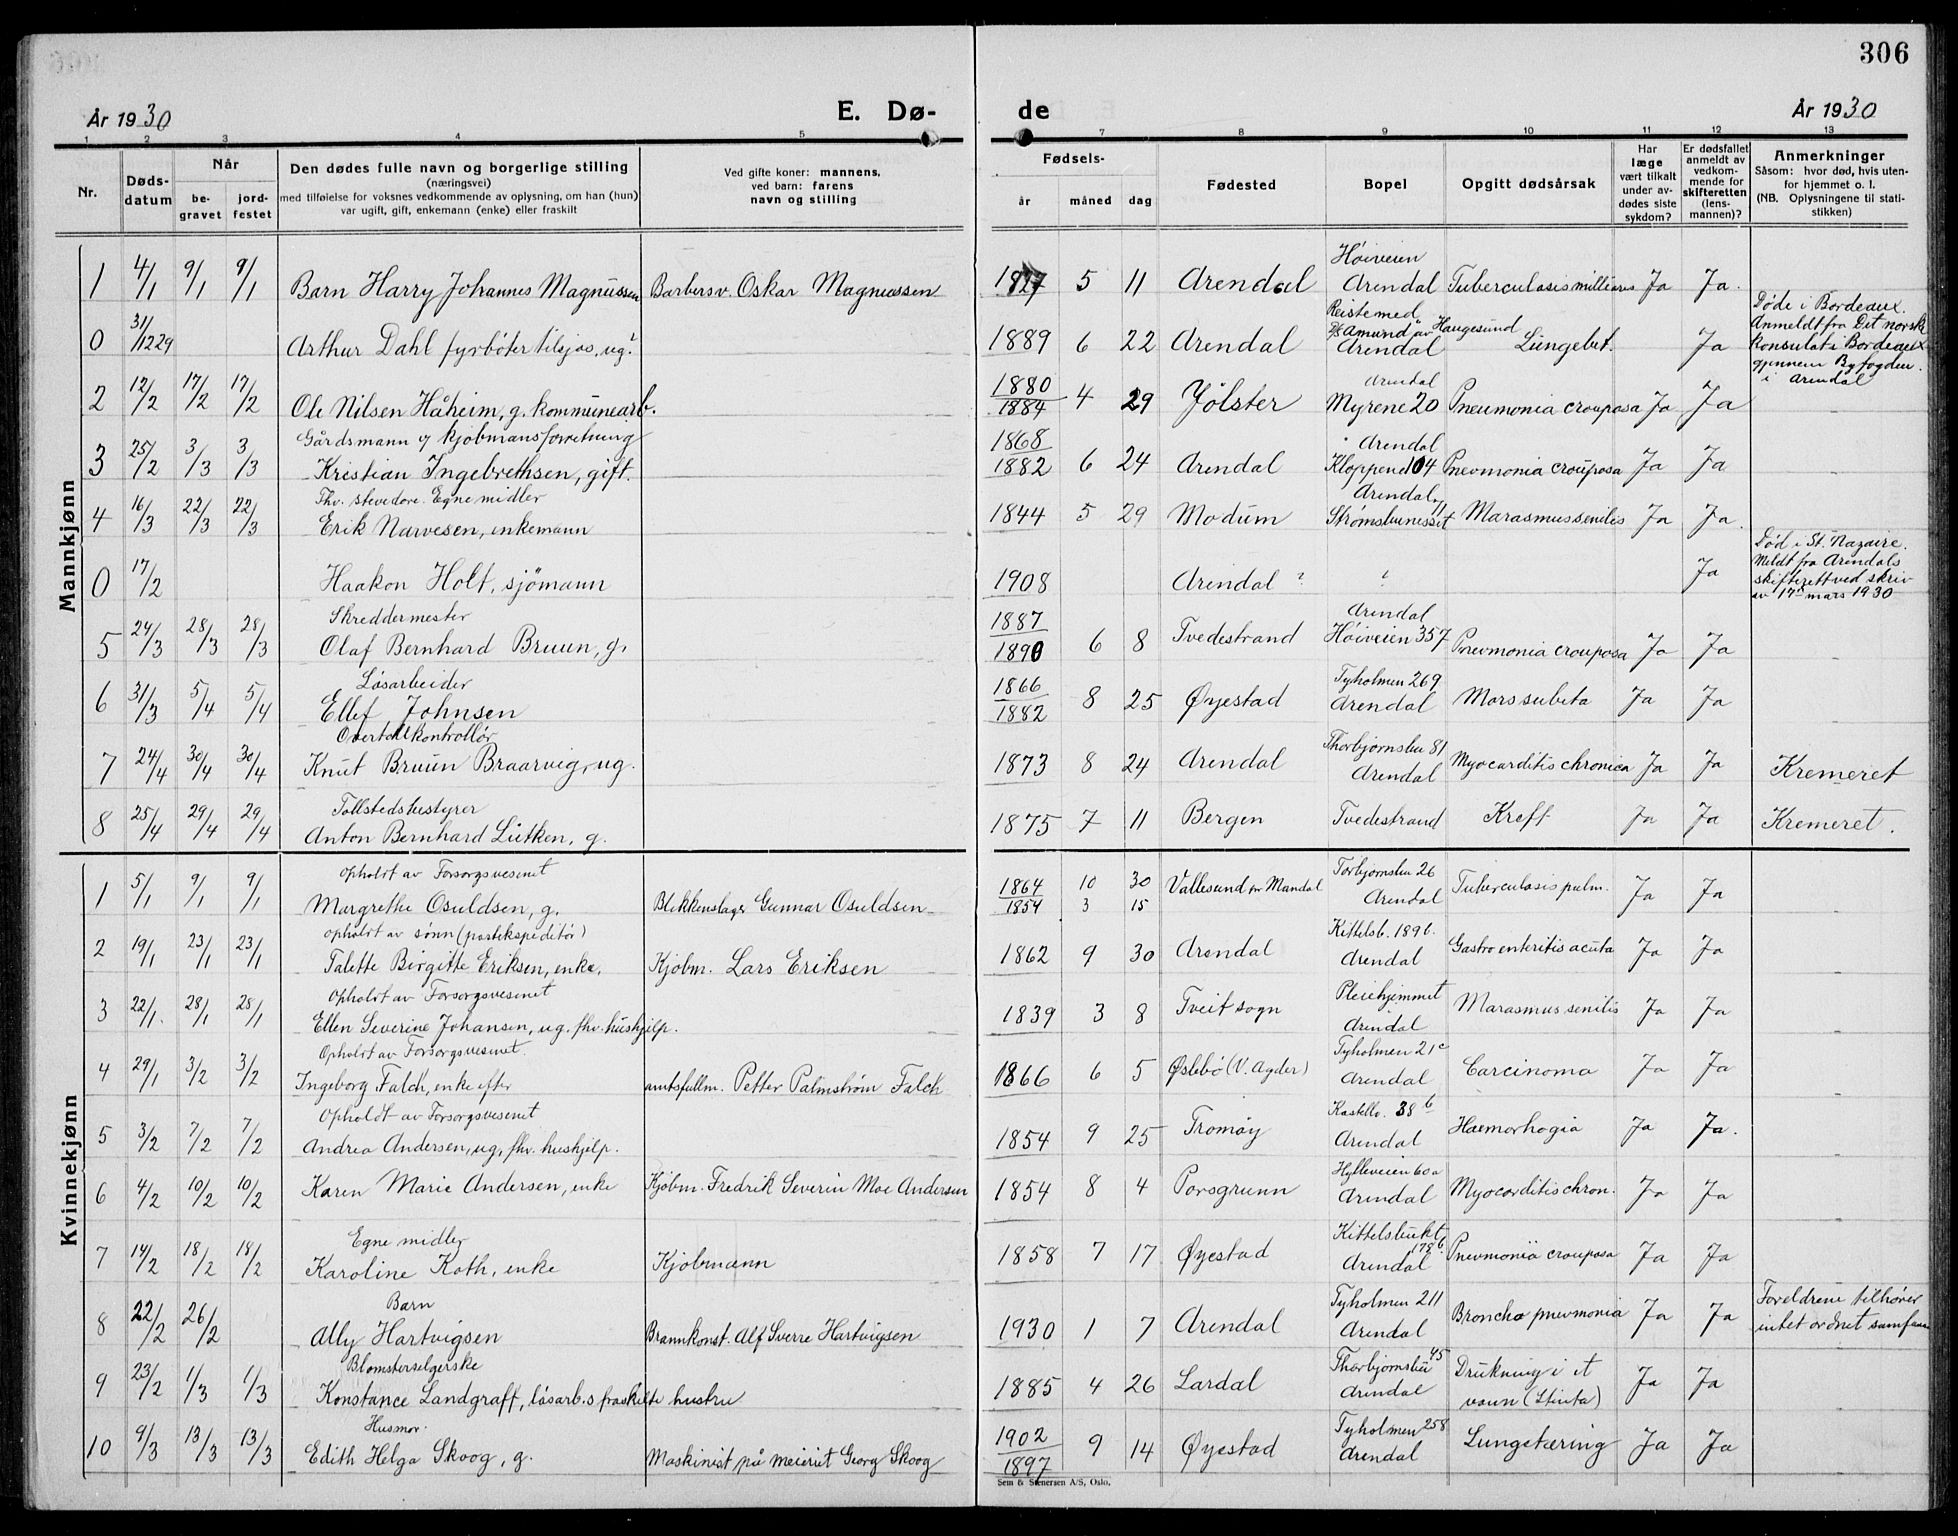 306
År 1930
E. Dø-
de
År 1930
1 2 3 4 5 7 8 9 10 11 12 13
Nr.
Døds-
datum
Når
be-
gravet
jord-
festet
Den dødes fulle navn og borgerlige stilling
(næringsvei)
med tilføielse for voksnes vedkommende av oplysning, om han (hun)
var ugift, gift, enkemann (enke) eller fraskilt
Ved gifte koner: mannens,
ved barn: farens
navn og stilling
Fødsels-
år måned dag
Fødested
Bopel
Opgitt dødsårsak
Har
læge
vært tilkalt
under av-
dødes siste
sykdom?
Er dødsfallet
anmeldt av
vedkom-
mende for
skifteretten
(lens-
mannen)?
Anmerkninger
Såsom: hvor død, hvis uten-
for hjemmet o. l.
(NB. Oplysningene til stati-
stikken)
Mannkjønn
Høiveien
1 4/1 9/1 9/1 Barn Harry Johannes Magnussen Barbersv. Oskar Magnussen 1927 5 11 Arendal Arendal Tuberculosis milliares Ja Ja.
Reiste med
D/S "Amund" av Haugesund
0 31/12 29 Arthur Dahl fyrbøter tilsjøs, ug. 1889 6 22 Arendal Arendal Lungebet. Ja
Døde i Bordeaux.
Anmeldt fra Det norske
Konsulat i Bordeaux
gjennem Byfogden
i Arendal
1880 Arendal
2 12/2 17/2 17/2 Ole Nilsen Håheim, g. kommunearb. 1884 4 29 Jølster Myrene 20 Pneumonia crouposa Ja Ja
Gårdsmann og kjøbmansforretning 1868 Arendal
3 25/2 3/3 3/3 Kristian Ingebrethsen, gift. 1882 6 24 Arendal Kloppend 104 Pnevmonia crouposa Ja Ja
Fhv. stevedore. Egne midler Arendal
4 16/3 22/3 22/3 Erik Narvesen, enkemann 1844 5 29 Modum Strømsbunesset Marasmus senilis Ja Ja.
0 17/2 Haakon Holt, sjømann 1908 Arendal ? Ja
Død i St. Nazaire.
Meldt fra Arendals
skifterett ved skriv
av 17 mars 1930
Skreddermester 1887 Arendal
5 24/3 28/3 28/3 Olaf Bernhard Bruun, g. 1890 6 8 Tvedestrand Høiveien 357 Pnevmonia crouposa Ja Ja
Løsarbeider 1866 Tyholmen 269
6 31/3 5/4 5/4 Ellef Johnsen 1882 8 25 Øyestad Arendal Mors subeta Ja Ja
Overtollkontrollør Thorbjørnsbu 81
7 24/4 30/4 30/4 Knut Bruun Braarvig, ug. 1873 8 24 Arendal Arendal Myocarditis chronica Ja Ja Kremeret
Tollstedsbestyrer
8 25/4 29/4 29/4 Anton Bernhard Lütken, g. 1875 7 11 Bergen Tvedestrand Kreft Ja Ja Kremeret.
Kvinnekjønn
Opholdt av Forsorgsvesenet 1864 10 30 Torbjørnsbu 26
1 5/1 9/1 9/1 Margrethe Osuldsen, g. Blikkenslager Gunnar Osuldsen 1854 3 15 Vallesund pr Mandal Arendal Tuberculosis pulm. Ja Ja
Opholdt av sønn (postekspeditør) Kittelsb. 189 b.
2 19/1 23/1 23/1 Talette Birgitte Eriksen, enke. Kjøbm. Lars Eriksen 1862 9 30 Arendal Arendal Gastro enteritis acuta Ja Ja
Opholdt av Forsorgsvesenet Pleiehjemmet
3 22/1. 28/1 28/1 Ellen Severine Johansen, ug. fhv. hushjelp. 1839 3 8 Tveit sogn Arendal Marasmus senilis Ja Ja
Opholdt av Forsorgsvesenet. Tyholmen 21 c
4 29/1 3/2 3/2 Ingeborg Falch, enke efter amtsfullm. Petter Palmstrøm Falch 1866 6 5 Øslebø (V. Agder) Arendal Carcinoma Ja Ja
Opholdt av Forsorgsvesenet Kastellv. 38 b
5 3/2 7/2 7/2 Andrea Andersen, ug. fhv. hushjelp. 1854 9 25 Tromøy Arendal Haemorhagia Ja Ja.
Hylleveien 60 a
6 4/2 10/2 10/2 Karen Marie Andersen, enke Kjøbm. Fredrik Severin Moe Andersen 1854 8 4 Porsgrunn Arendal Myocarditis chron. Ja Ja
Egne midler Kittelsbukt 178 b
7 14/2 18/2 18/2 Karoline Koth, enke Kjøbmann 1858 7 17 Øyestad Arendal Pnevmonia crouposa Ja Ja
Barn Tyholmen 211
8 22/2 26/2 Ally Hartvigsen Brannkonst. Alf Sverre Hartvigsen 1930 1 7 Arendal Arendal Broncho pnevmonia Ja Ja
Foreldrene tilhører
intet ordnet samfunn
Blomsterselgerske Thorbjørnsbu 45
9 23/2 1/3 1/3 Konstance Landgraff, løsarb.s fraskilte hustru 1885 4 26 Lardal Arendal Drukning i et
vann (Stinta) Ja Ja
Husmor. 1902 Tyholmen 258
10 9/3 13/3 13/3 Edith Helga Skoog, g. Maskinist på meieriet Georg Skoog 1897 9 14 Øyestad Arendal Lungetæring Ja Ja
Sem & Stenersen A/S, Oslo.